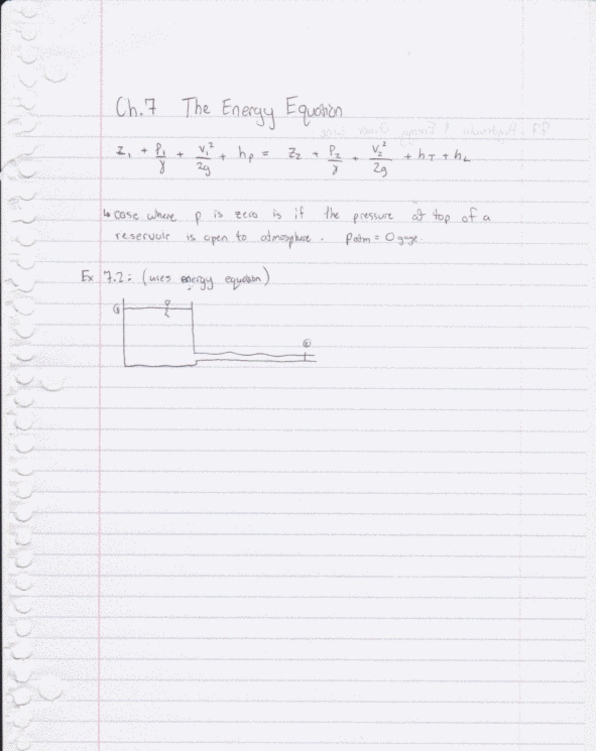 Ch.7 The Energy Equation
z₁ + P₁/γ + V₁²/2g + hp = z₂ + P₂/γ + V₂²/2g + hT + hL
↳ case where p is zero is if the pressure at top of a
reservoir is open to atmosphere. Patm = 0 gage.
Ex 7.2: (uses energy equation)
①
②